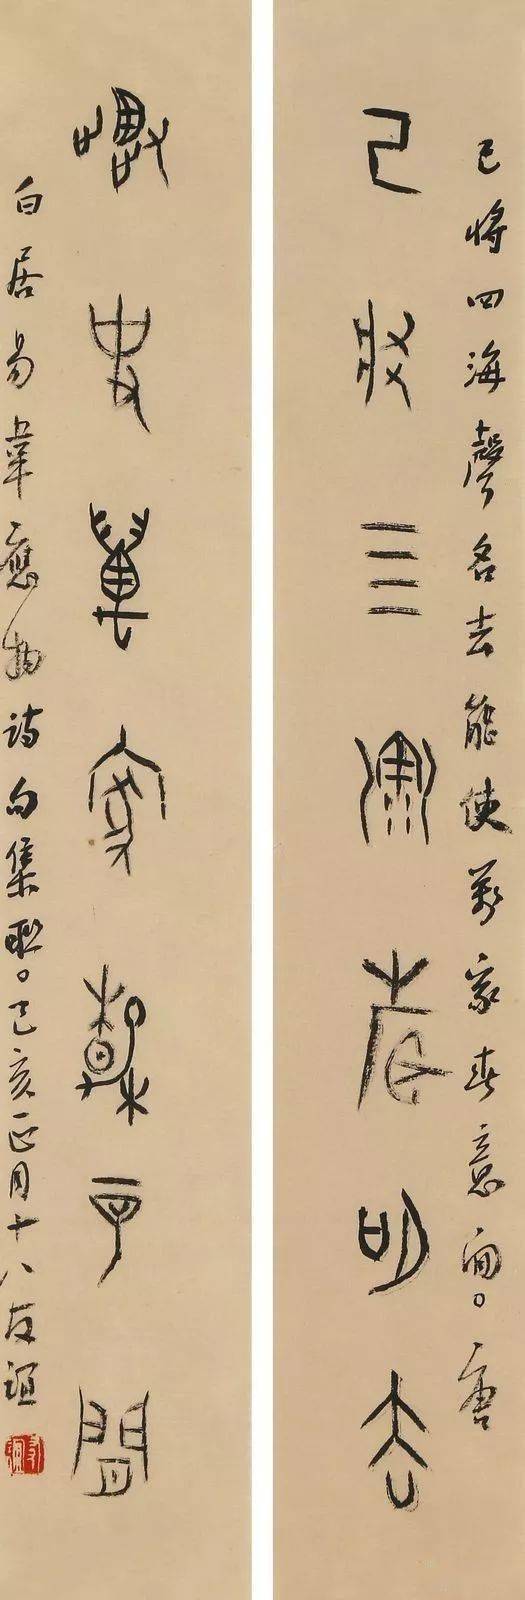 已將四海聲名去能使萬家春意間。唐
已將四海聲名去
能使萬家春意間
白居易韋應物詩句集聯。己亥正月十八友誼